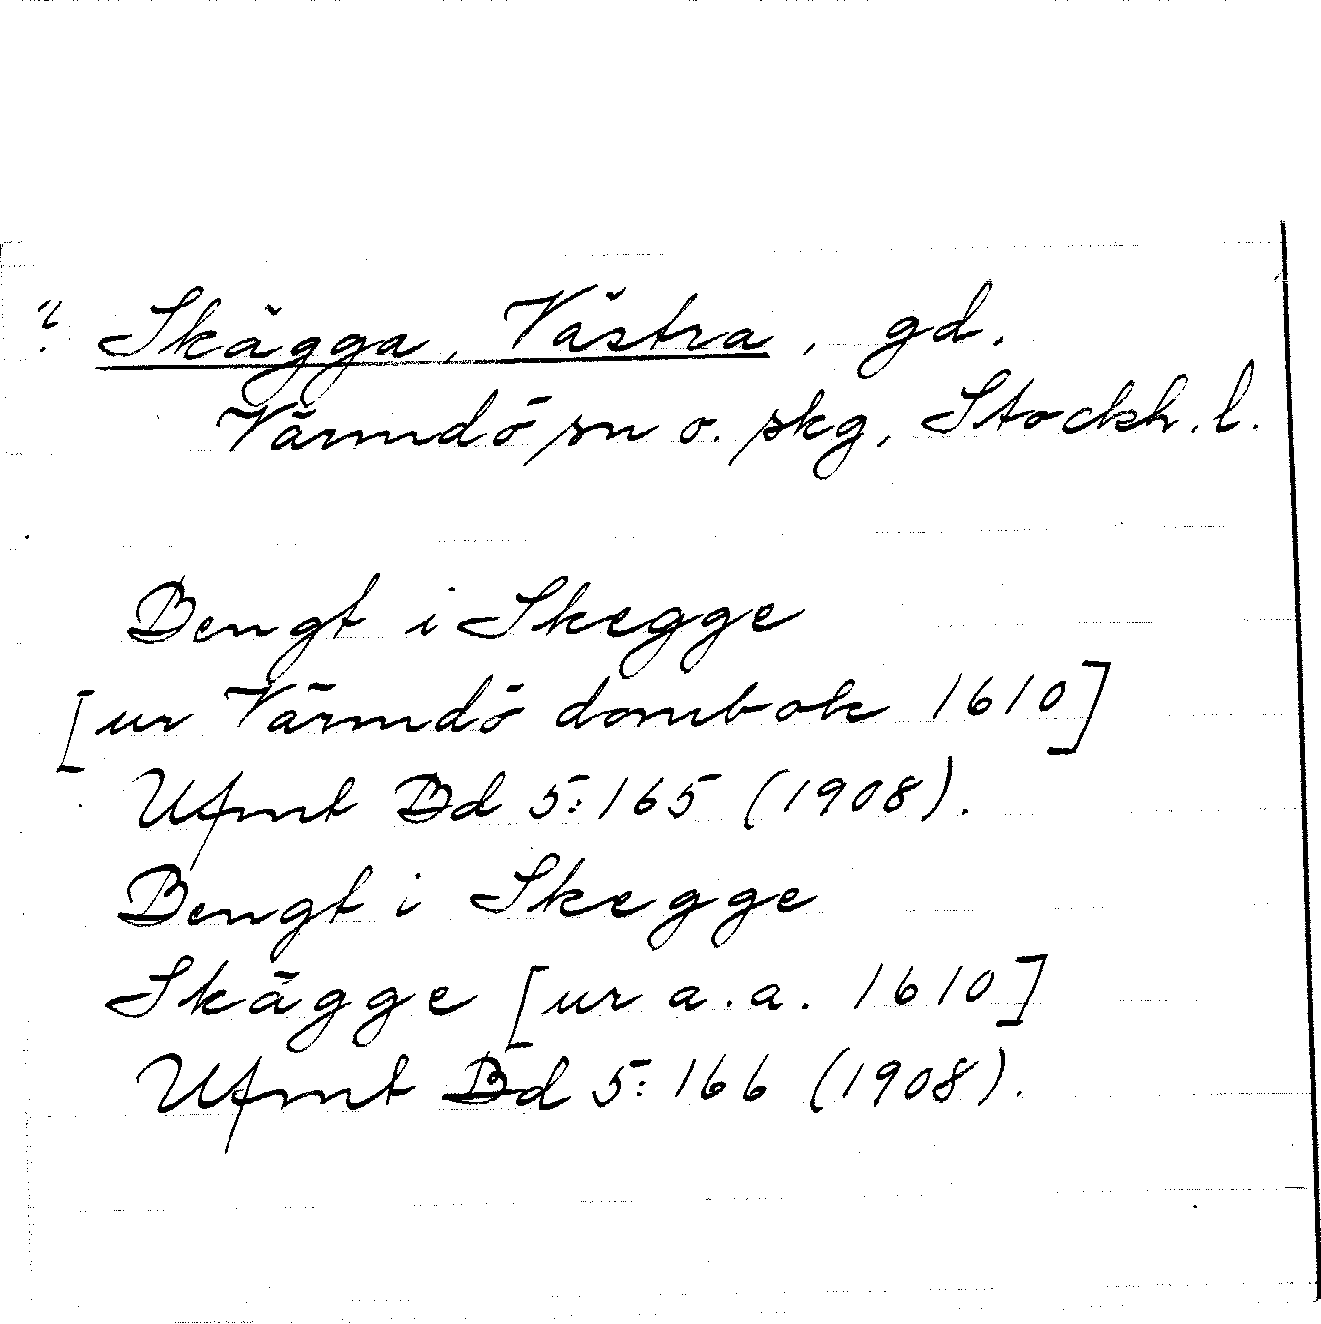 ? Skägga, Västra, gd.
Värmdö sn o. skg, Stockh. l.
Bengt i Skegge
[ur Värmdö dombok 1610]
Ufmt Bd 5:165 (1908).
Bengt i Skegge
Skägge [ur a.a. 1610]
Ufmt Bd 5:166 (1908).